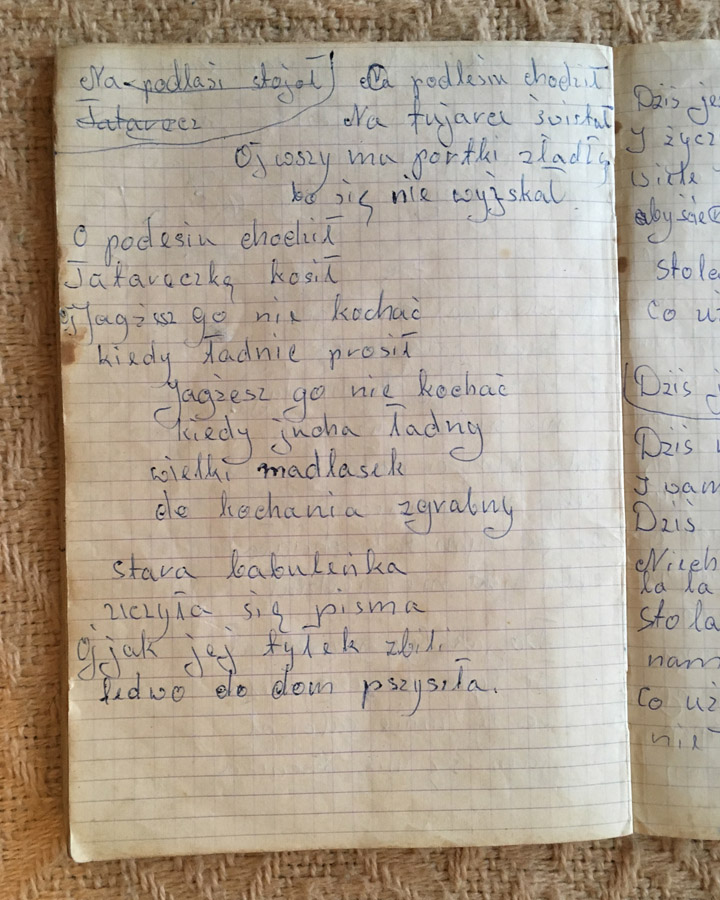 Na podlasi stojoł
Tatarecz
Na podlesiu chodził
Na fujarce świstał
Oj wszy mu portki zładły
bo się nie wyżskał
O podesiu chodził
Tataraczką kosił
Jagżesz go nie kochać
kiedy ładnie prosił
Jagżesz go nie kochać
kiedy jucha ładny
wielki madlasek
do kochania zgrabny
stara babuleńka
uczyła się pisma
Ojjak jej tyłek zbili
ledwo do dom pszysiła.
Dziś
wiele
Co
Dziś
Dziś
Dziś
la la
nam
Co
nie